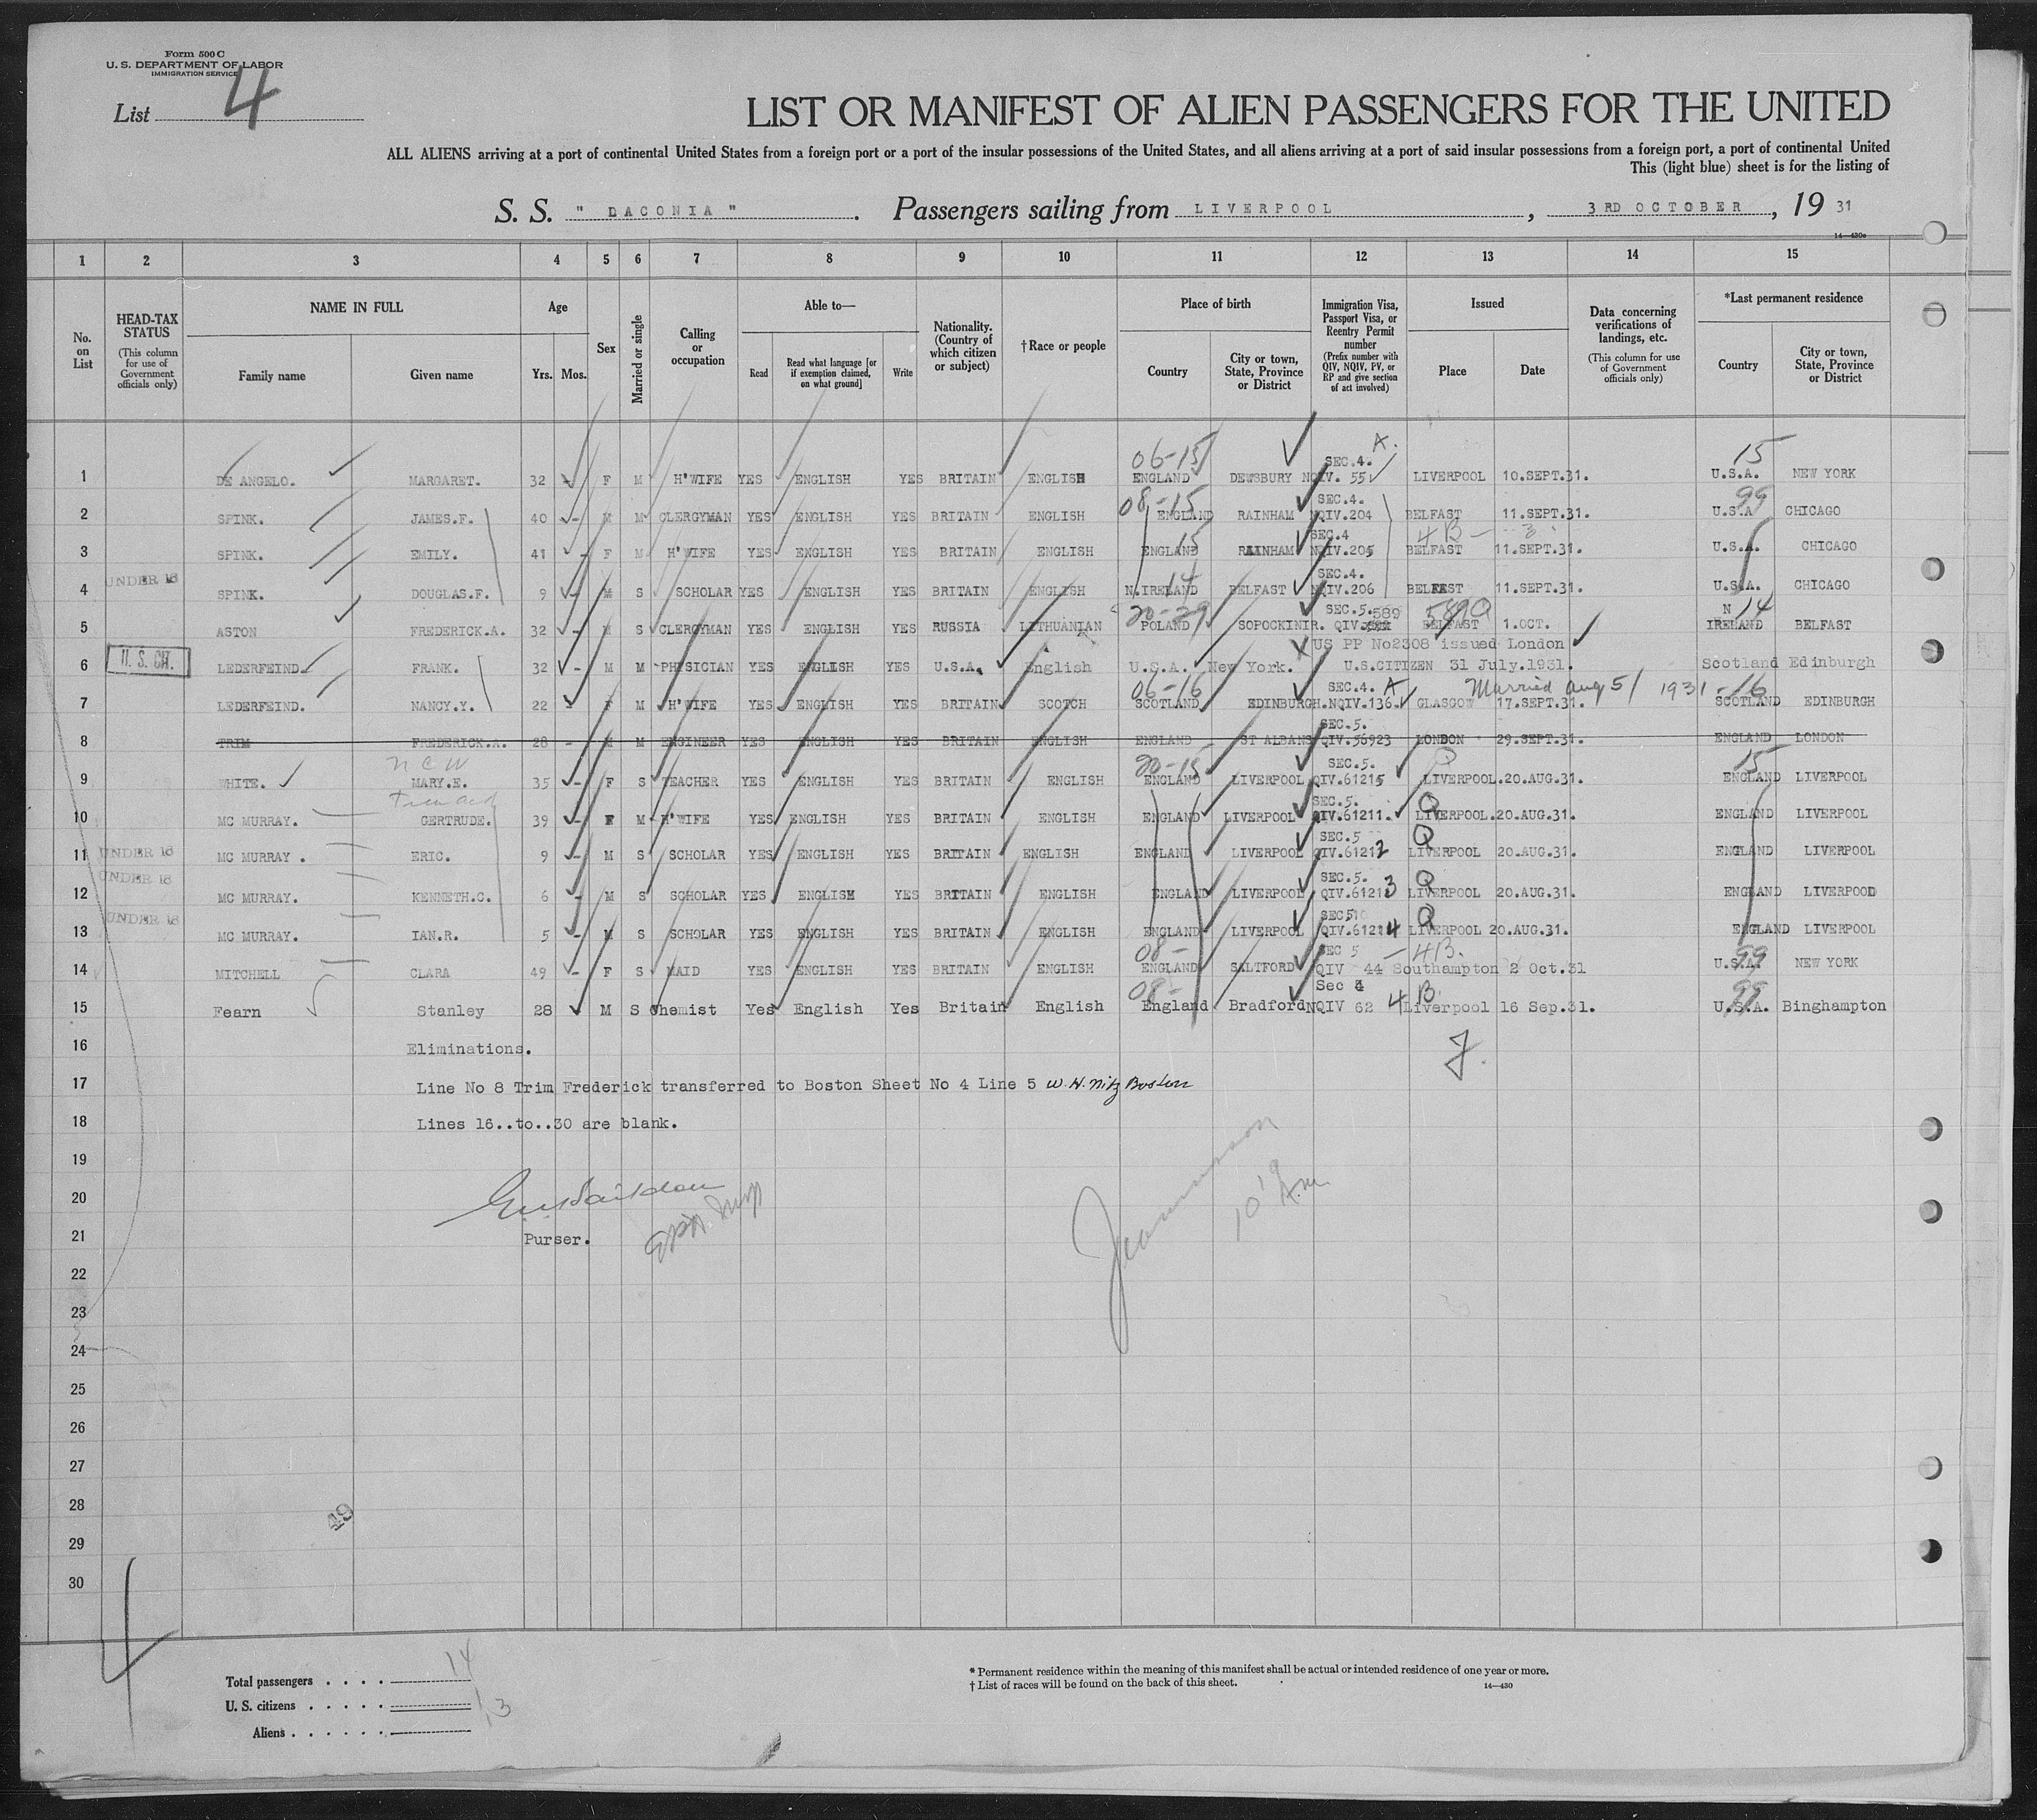 Form 500 C
U. S. DEPARTMENT OF LABOR
IMMIGRATION SERVICE
List 4
LIST OR MANIFEST OF ALIEN PASSENGERS FOR THE UNITED
ALL ALIENS arriving at a port of continental United States from a foreign port or a port of the insular possessions of the United States, and all aliens arriving at a port of said insular possessions from a foreign port, a port of continental United
This (light blue) sheet is for the listing of
S. S. " DACONIA " . Passengers sailing from LIVERPOOL , 3RD OCTOBER , 19 31
14—430a
1 2 3 4 5 6 7 8 9 10 11 12 13 14 15
No. on List
HEAD-TAX STATUS (This column for use of Government officials only)
NAME IN FULL Family name Given name
Age Yrs. Mos.
Sex
Married or single
Calling or occupation
Able to— Read Read what language [or if exemption claimed, on what ground] Write
Nationality. (Country of which citizen or subject)
†Race or people
Place of birth Country City or town, State, Province or District
Immigration Visa, Passport Visa, or Reentry Permit number (Prefix number with QIV, NQIV, PV, or RP and give section of act involved)
Issued Place Date
Data concerning verifications of landings, etc. (This column for use of Government officials only)
*Last permanent residence Country City or town, State, Province or District
06-15 SEC.4. A. 15
1 DE ANGELO. MARGARET. 32 - F M H'WIFE YES ENGLISH YES BRITAIN ENGLISH ENGLAND DEWSBURY NQIV. 55 LIVERPOOL 10.SEPT.31. U.S.A. NEW YORK
08-15 SEC.4. 99
2 SPINK. JAMES.F. 40 - M M CLERGYMAN YES ENGLISH YES BRITAIN ENGLISH ENGLAND RAINHAM NQIV.204 BELFAST 11.SEPT.31. U.S.A CHICAGO
15 SEC.4 4B - 3
3 SPINK. EMILY. 41 - F M H'WIFE YES ENGLISH YES BRITAIN ENGLISH ENGLAND RAINHAM NQIV.205 BELFAST 11.SEPT.31. U.S.A. CHICAGO
UNDER 16 14 SEC.4.
4 SPINK. DOUGLAS.F. 9 - M S SCHOLAR YES ENGLISH YES BRITAIN ENGLISH N.IRELAND BELFAST NQIV.206 BELFAST 11.SEPT.31. U.S.A. CHICAGO
20-29 SEC.5. 589 589Q N 14
5 ASTON FREDERICK.A. 32 - M S CLERGYMAN YES ENGLISH YES RUSSIA LITHUANIAN POLAND SOPOCKINIR. QIV. BELFAST 1.OCT. IRELAND BELFAST
US PP No2308 issued London
6 U. S. CIT. LEDERFEIND. FRANK. 32 - M M PHYSICIAN YES ENGLISH YES U.S.A. English U.S.A. New York. U.S.CITIZEN 31 July.1931. Scotland Edinburgh
06-16 SEC.4. A Married Aug 5/ 1931 - 16
7 LEDERFEIND. NANCY.Y. 22 - F M H'WIFE YES ENGLISH YES BRITAIN SCOTCH SCOTLAND EDINBURGH. NQIV-136. GLASGOW 17.SEPT.31. SCOTLAND EDINBURGH
SEC.5.
8 TRIM FREDERICK.A. 28 - M M ENGINEER YES ENGLISH YES BRITAIN ENGLISH ENGLAND ST ALBANS QIV.56923 LONDON 29.SEPT.31. ENGLAND LONDON
20-15 SEC.5. Q 15
9 WHITE. MARY.E. 35 - F S TEACHER YES ENGLISH YES BRITAIN ENGLISH ENGLAND LIVERPOOL QIV.61215 LIVERPOOL. 20.AUG.31. ENGLAND LIVERPOOL
SEC.5. Q
10 MC MURRAY. GERTRUDE. 39 - F M H'WIFE YES ENGLISH YES BRITAIN ENGLISH ENGLAND LIVERPOOL QIV.61211. LIVERPOOL. 20.AUG.31. ENGLAND LIVERPOOL
SEC.5 Q
11 UNDER 16 MC MURRAY . ERIC. 9 - M S SCHOLAR YES ENGLISH YES BRITAIN ENGLISH ENGLAND LIVERPOOL QIV.61212 LIVERPOOL 20.AUG.31. ENGLAND LIVERPOOL
UNDER 16 SEC.5. Q
12 MC MURRAY. KENNETH.C. 6 - M S SCHOLAR YES ENGLISH YES BRITAIN ENGLISH ENGLAND LIVERPOOL QIV.61213 LIVERPOOL 20.AUG.31. ENGLAND LIVERPOOL
UNDER 16 SEC 5 Q
13 MC MURRAY. IAN.R. 5 - M S SCHOLAR YES ENGLISH YES BRITAIN ENGLISH ENGLAND LIVERPOOL QIV.61214 LIVERPOOL 20.AUG.31. ENGLAND LIVERPOOL
08- SEC 5 - 4B. 99
14 MITCHELL CLARA 49 - F S MAID YES ENGLISH YES BRITAIN ENGLISH ENGLAND SALTFORD QIV 44 Southampton 2 Oct.31 U.S.A. NEW YORK
08- Sec 4 4B 99
15 Fearn Stanley 28 M S Chemist Yes English Yes Britain English England Bradford NQIV 62 Liverpool 16 Sep.31. U.S.A. Binghampton
16 Eliminations.
17 Line No 8 Trim Frederick transferred to Boston Sheet No 4 Line 5 W. H. Nitz Boston
18 Lines 16..to..30 are blank.
19
20
21 Purser.
22
23
24
25
26
27
28
49
29
30
4
Total passengers . . . . 14
U. S. citizens . . . . . 1
Aliens . . . . . . 13
* Permanent residence within the meaning of this manifest shall be actual or intended residence of one year or more.
† List of races will be found on the back of this sheet.
14—430